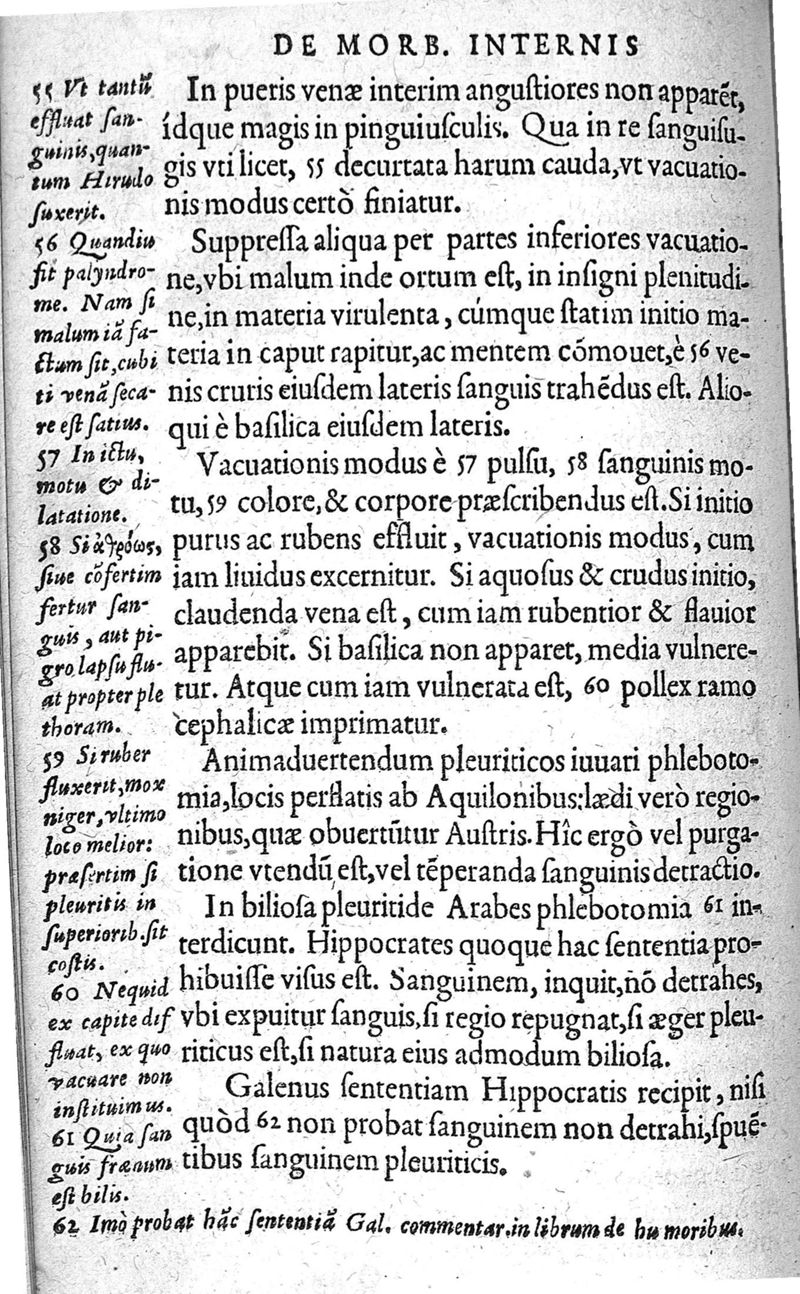 DE MORB. INTERNIS
In pueris venæ interim angustiores non apparēt,
ídque magis in pinguiusculis. Qua in re sanguisu-
gis vti licet, 55 decurtata harum cauda, vt vacuatio-
nis modus certò finiatur.
Suppressa aliqua per partes inferiores vacuatio-
ne, vbi malum inde ortum est, in insigni plenitudi-
ne, in materia virulenta, cúmque statim initio ma-
teria in caput rapitur, ac mentem cōmouet, è 56 ve-
nis cruris eiusdem lateris sanguis trahēdus est. Alio-
qui è basilica eiusdem lateris.
Vacuationis modus è 57 pulsu, 58 sanguinis mo-
tu, 59 colore, & corpore præscribendus est. Si initio
purus ac rubens effluit, vacuationis modus, cum
iam liuidus excernitur. Si aquosus & crudus initio,
claudenda vena est, cum iam rubentior & flauior
apparebit. Si basilica non apparet, media vulnere-
tur. Atque cum iam vulnerata est, 60 pollex ramo
cephalicæ imprimatur.
Animaduertendum pleuriticos iuuari phleboto-
mia, locis perflatis ab Aquilonibus: lædi verò regio-
nibus, quæ obuertūtur Austris. Hîc ergò vel purga-
tione vtendū est, vel tēperanda sanguinis detractio.
In biliosa pleuritide Arabes phlebotomia 61 in-
terdicunt. Hippocrates quoque hac sententia pro-
hibuisse visus est. Sanguinem, inquit, nō detrahes,
vbi expuitur sanguis, si regio repugnat, si æger pleu-
riticus est, si natura eius admodum biliosa.
Galenus sententiam Hippocratis recipit, nisi
quòd 62 non probat sanguinem non detrahi, spuē-
tibus sanguinem pleuriticis.
55 Vt tantū
effluat san-
guinis, quan-
tum Hirudo
suxerit.
56 Quandiu
fit palyndro-
me. Nam si
malum iā fa-
ctum sit, cubi
ti venā seca-
re est satius.
57 In ictu,
motu & di-
latatione.
58 Si ἀθρόως,
siue cōfertim
fertur san-
guis, aut pi-
gro lapsu flu-
at propter ple
thoram.
59 Si ruber
fluxerit, mox
niger, vltimo
loco melior:
præsertim si
pleuritis in
superiorib. sit
costis.
60 Nequid
ex capite dif
fluat, ex quo
vacuare non
instituimus.
61 Quia san
guis frænum
est bilis.
62 Imò probat hāc sententiā Gal. commentar. in librum de humoribus.